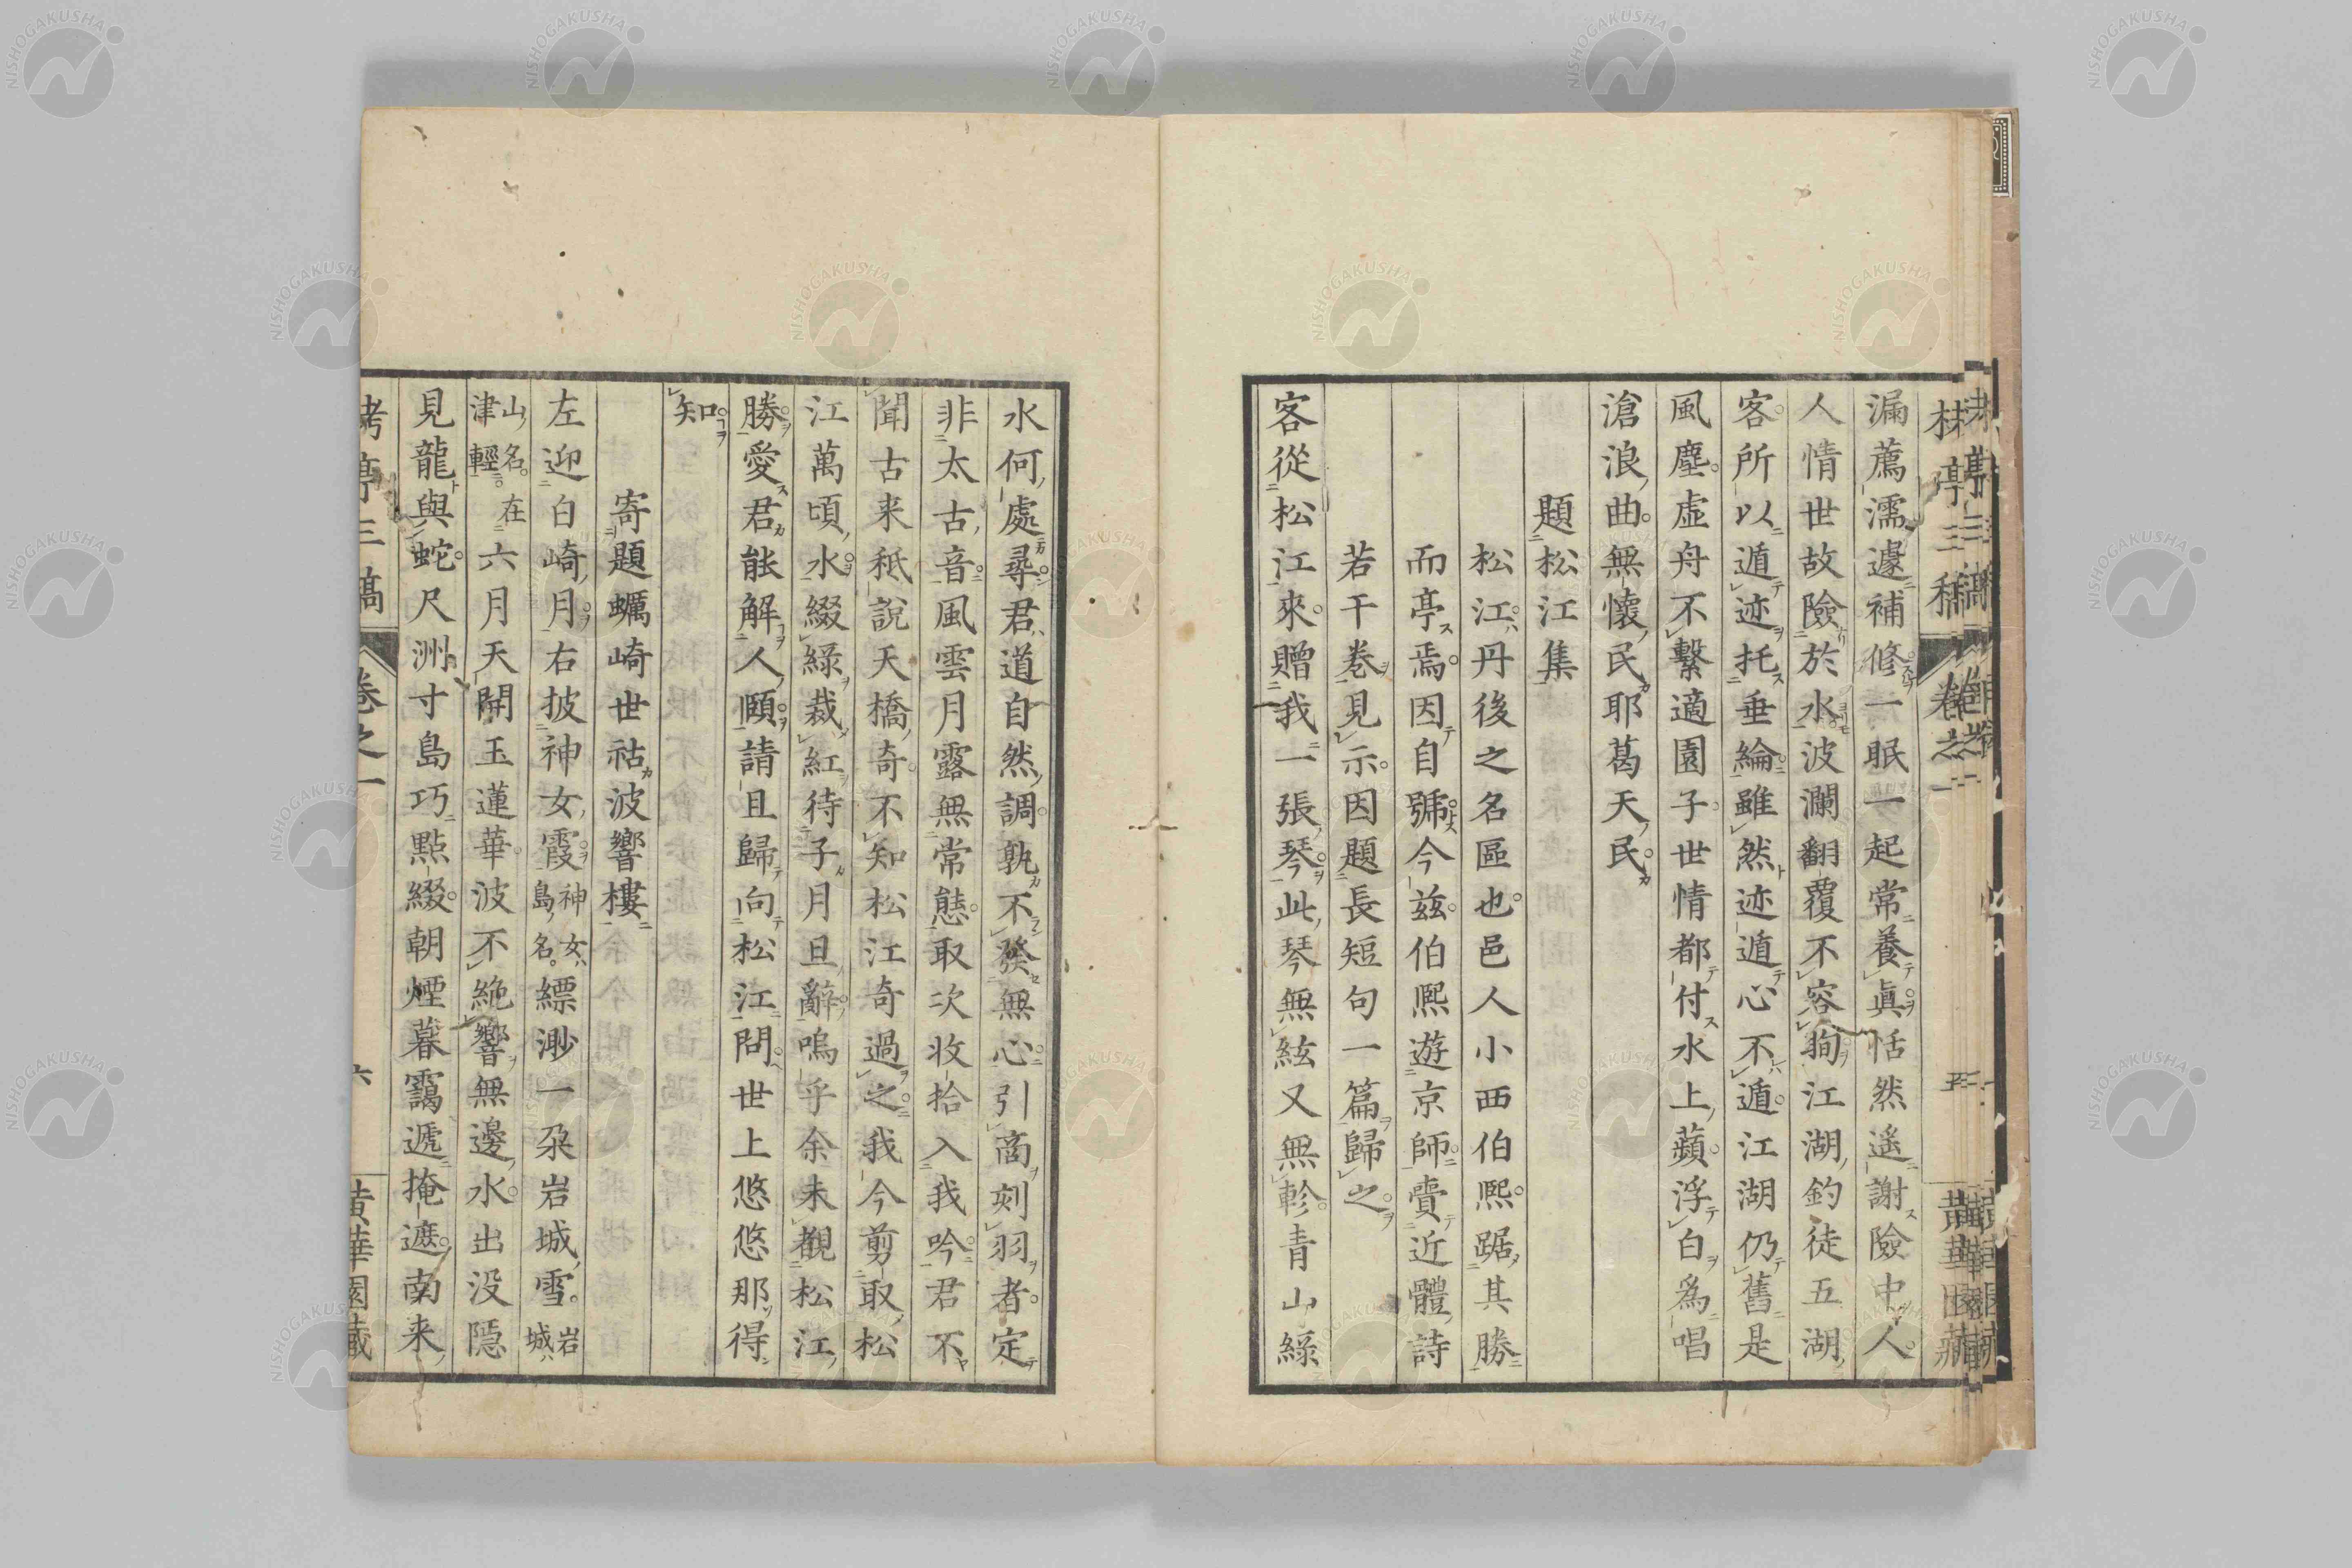 漏薦濡遽補修一眠一起常養眞恬然遙謝險中人
人情世故險於水波瀾翻覆不容駒江湖釣徒五湖
客所以遁迹托垂綸雖然迹遁心不遁江湖仍舊是
風塵虛舟不繫適園子世情都付水上蘋浮白爲唱
滄浪曲無懷民耶葛天民
題松江集
松江丹後之名區也邑人小西伯熙踞其勝
而亭焉因自號今茲伯熙遊京師賷近體詩
若干卷見示因題長短句一篇歸之
客從松江來贈我一張琴琴此琴無絃又無軫青山綠
水何處尋君道自然調孰不發無心引商刻羽者定
非太古音風雲月露無常態取次收拾入我吟君不
聞古来秪說天橋奇不知松江奇過之我今剪取松
江萬頃水綴綠裁紅待子月旦辭嗚乎余未觀松江
勝愛君能解人頤請且歸向松江問世上悠悠那得
知
寄題蠣崎世祜波響樓
左迎白崎月右披神女霞神女島名縹渺一朶岩城雪岩城
山名在津輕六月天開玉蓮華波不絶響無邊水出没隠
見龍與蛇尺洲寸島巧點綴朝煙暮靄遞掩遮南来
栲亭三稿
卷之一
六
黄華園藏
NISHOGAKUSHA